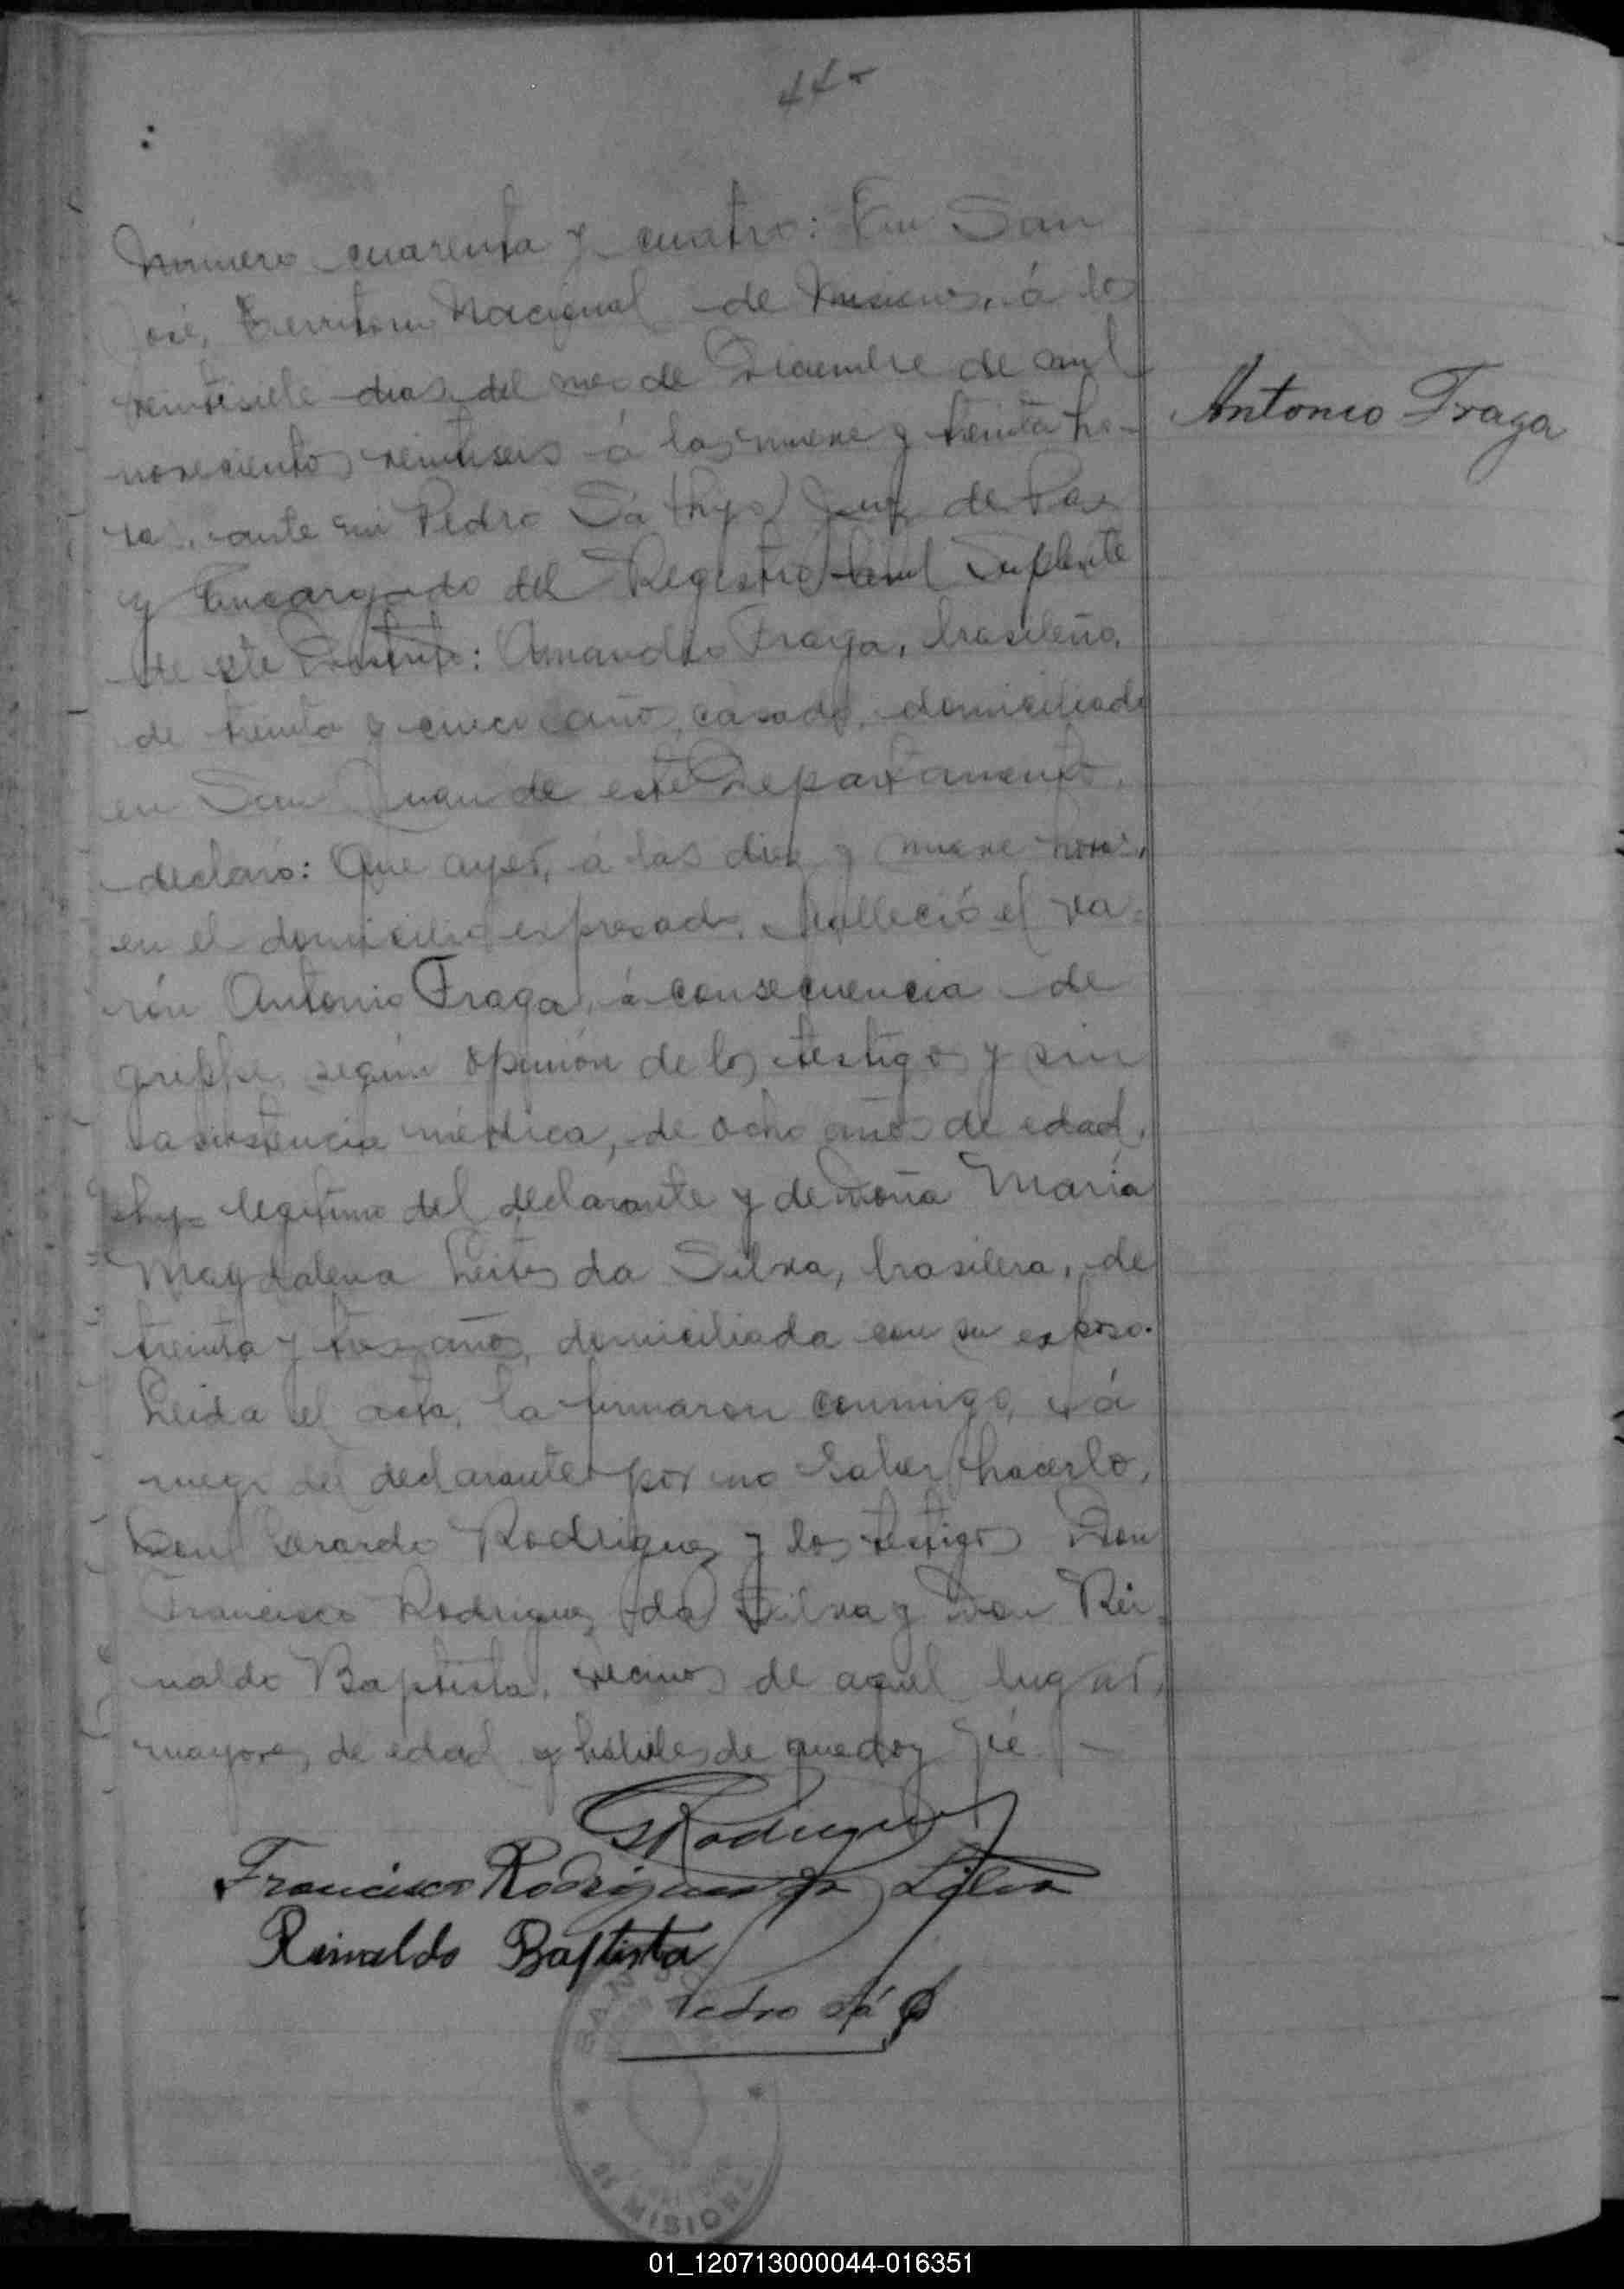 44-
Número cuarenta y cuatro: En San
José, Territorio Nacional de Misiones, á los
veintisiete dias del mes de Diciembre de mil
novecientos veintiseis á las nueve y treinta ho-
ras, ante mi Pedro Sá (hijo) Juez de Paz
y Encargado del Registro Civil Suplente
de este Distrito: Amandio Fraga, brasileño,
de treinta y cinco años, casado, domiciliado
en San Juan de este Departamento,
declaró: Que ayer, á las diez y nueve horas,
en el domicilio expresado, falleció el va-
rón Antonio Fraga, á consecuencia de
grippe, según opinión de los testigos y sin
asistencia médica, de ocho años de edad,
hijo legitimo del declarante y de Doña María
Magdalena Leites da Silva, brasilera, de
treinta y tres años, domiciliada con su esposo.
Leida el acta, la firmaron conmigo, á
ruego del declarante por no saber hacerlo,
Don Gerardo Rodriguez y los testigos Don
Francisco Rodriguez da Silva y Don Rei-
naldo Baptista, vecinos de aquel lugar,
mayores de edad y hábiles de que doy fé. -
Antonio Fraga
GRodriguez
Francisco Rodriguez da Silva
Reinaldo Baptista
Pedro Sá
SAN
DE MISIONES
01_120713000044-016351